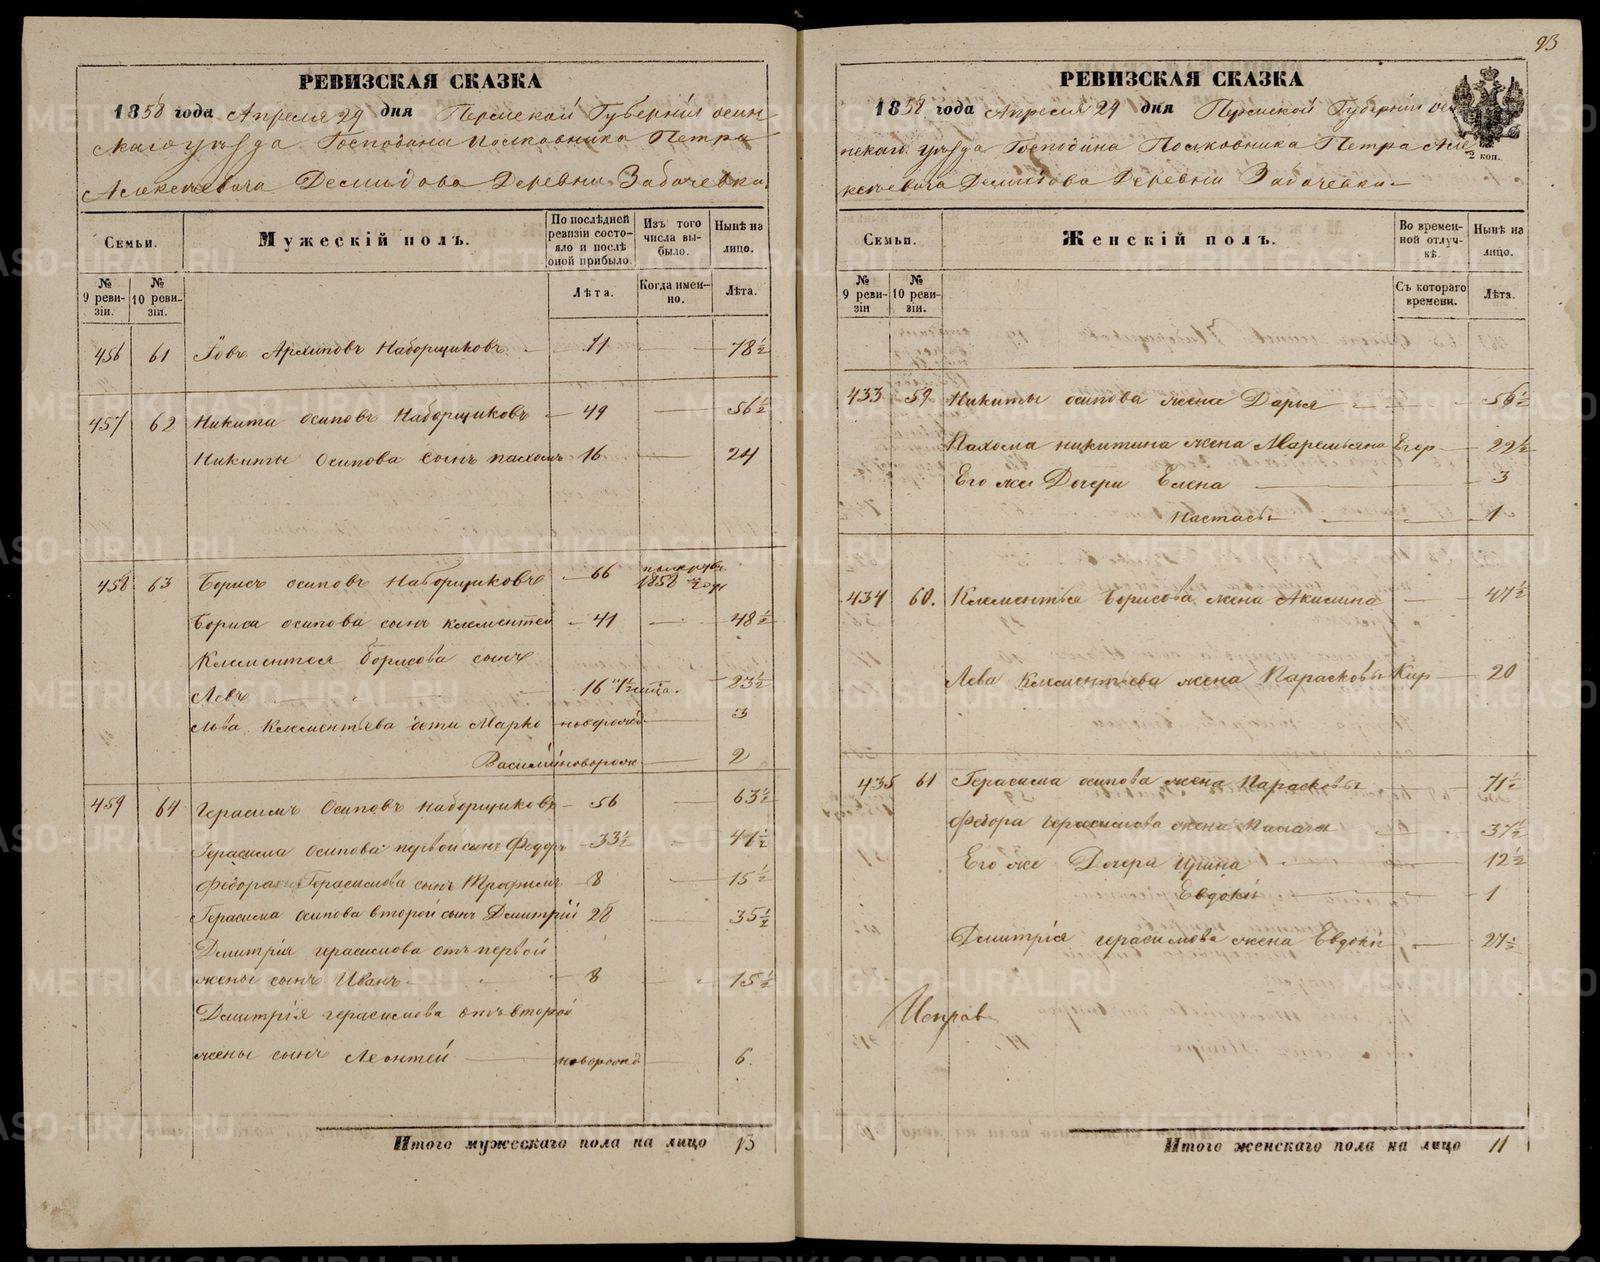 93
РЕВИЗСКАЯ СКАЗКА
1858 года Апреля 29 дня Пермской Губернiи осин
скаго уѣзда Господина Полковника Петра
Алексѣевича Демидова Деревни Забачевки
Семьи.
Мужескiй полъ.
По послѣдней ревизiи состояло и послѣ оной прибыло.
Изъ того числа выбыло.
Нынѣ на лицо.
№ 9 ревизiи.
№ 10 ревизiи.
Лѣта.
Когда именно.
Лѣта.
456 61 Iовъ Архиповъ Наборщиковъ 71 78½
457 62 Никита осиповъ Наборщиковъ 49 56½
Никиты Осипова сынъ пахомъ 16 24
458 63 Борисъ осиповъ Наборщиковъ 66 1858
Бориса осипова сынъ клементей 41 48½
Клементея Борисова сынъ
Левъ 16 23½
Льва Клементьева дети Марко новорож 3
Василiй новорож 2
459 64 Герасимъ Осиповъ наборщиковъ 56 63½
Герасима Осипова первой сынъ Федоръ 33½ 41½
Федора Герасимова сынъ Трофимъ 8 15½
Герасима осипова второй сынъ Дмитрiй 28 35½
Дмитрiя герасимова отъ первой
жены сынъ Иванъ 8 15½
Дмитрiя герасимова отъ второй
жены сынъ Леонтей новорожд 6.
Итого мужескаго пола на лицо 13
РЕВИЗСКАЯ СКАЗКА
1858 года Апреля 29 дня Пермской Губернiи оси
нскаго уѣзда Господина Полковника Петра Але
2 коп.
ксѣевича Демидова Деревни Забачевки
Семьи.
Женскiй полъ.
Во временной отлучкѣ.
Нынѣ на лицо.
№ 9 ревизiи
№ 10 ревизiи.
Съ котораго времени.
Лѣта.
433 59 Никиты осипова жена Дарья 56½
Пахома никитина жена Маремьяна Егор 22½
Его же Дочери Елена 3
Настасья 1
434 60. Клементья Борисова жена Акилина 47½
Лева Клементьева жена Парасковья Кир 20
435 61 Герасима осипова жена Парасковья 71½
Федора герасимова жена Палагея 37½
Его же Дочери Ирина 12½
Евдокiя 1
Дмитрiя герасимова жена Евдокiя 27½
Исправ
Итого женскаго пола на лицо 11
METRIKI.GASO-URAL.RU